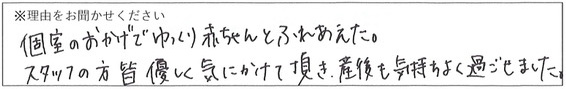 ※理由をお聞かせください
個室のおかげでゆっくり赤ちゃんとふれあえた。
スタッフの方皆優しく気にかけて頂き、産後も気持ちよく過ごせました。